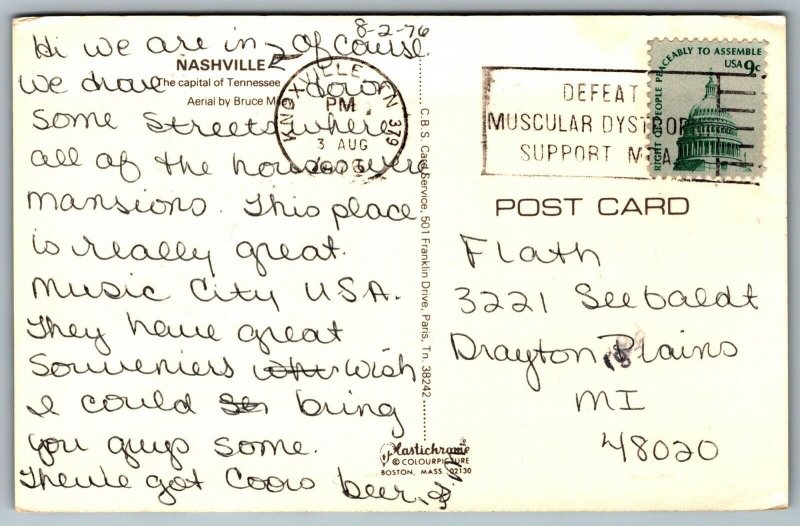 8-2-76
Hi we are in Of course
NASHVILLE
The capital of Tennessee
Aerial by Bruce
we drove down
some streets where
all of the houses were
mansions. This place
is really great.
Music City USA.
They have great
Souveniers wish
I could bring
you guys some.
Theuve got Coors beer,
KNOXVILLE TN 379
PM
3 AUG
C.B.S. Card Service, 501 Franklin Drive, Paris, Tn. 38242
Plastichrome
© COLOURPICTURE
BOSTON, MASS. 02130
DEFEAT
MUSCULAR DYSTROP
SUPPORT MDA
RIGHT OF PEOPLE PEACEABLY TO ASSEMBLE
USA 9c
POST CARD
Flath
3221 Seebaldt
Drayton Plains
MI
48020